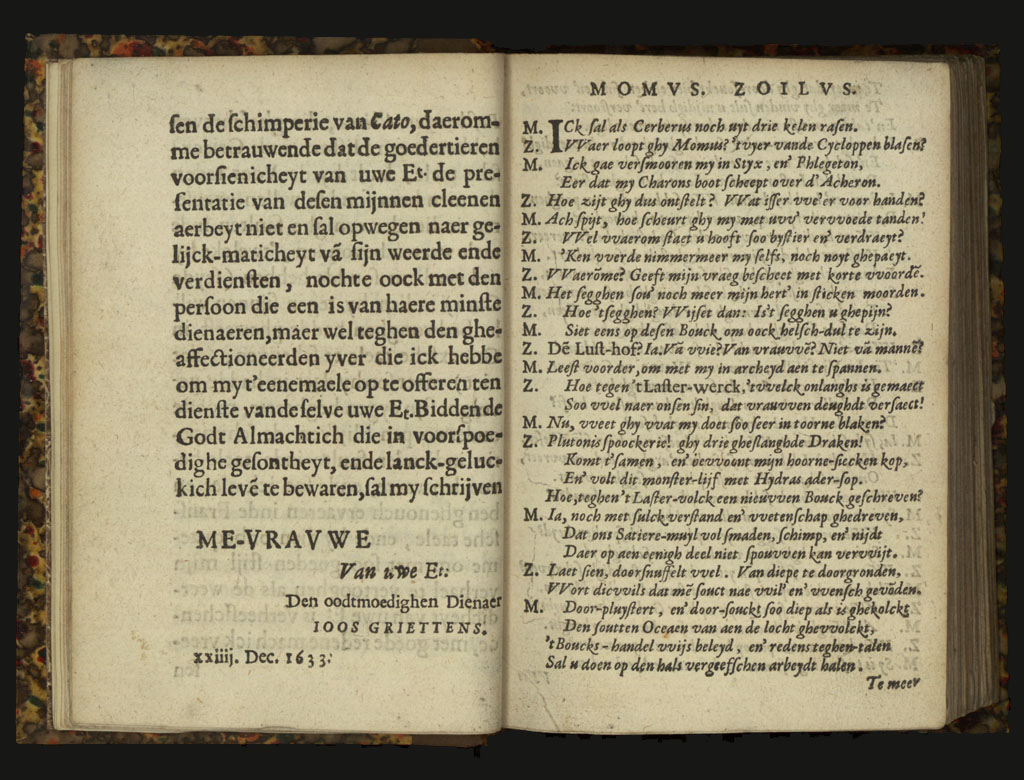 sen de schimperie van Cato, daerom-
me betrauwende dat de goedertieren
voorsienicheyt van uwe Et. de pre-
sentatie van desen mijnnen cleenen
aerbeyt niet en sal opwegen naer ge-
lijck-maticheyt vā sijn weerde ende
verdiensten, nochte oock met den
persoon die een is van haere minste
dienaeren, maer wel teghen den ghe-
affectioneerden yver die ick hebbe
om my t'eenemaele op te offeren ten
dienste vande selve uwe Et. Biddende
Godt Almachtich die in voorspoe-
dighe gesontheyt, ende lanck-geluc-
kich levē te bewaren, sal my schrijven
ME-VRAVWE
Van uwe Et.
Den oodtmoedighen Dienaer
IOOS GRIETTENS.
xxiiij. Dec. 1633.
MOMVS. ZOILVS.
M. ICk sal als Cerberus noch uyt drie kelen rasen.
Z. VVaer loopt ghy Momus? 'tvyer vande Cycloppen blasen?
M. Ick gae versmooren my in Styx, en' Phlegeton,
Eer dat my Charons boot scheept over d'Acheron.
Z. Hoe zijt ghy dus ontstelt? VVat isser vve'er voor handen?
M. Ach spijt, hoe scheurt ghy my met uvv' vervvoede tanden!
Z. VVel vvaerom staet u hooft soo bystier en' verdraeyt?
M. 'Ken vverde nimmermeer my selfs, noch noyt ghepaeyt.
Z. VVaerōme? Geeft mijn vraeg bescheet met korte vvoordē.
M. Het segghen sou' noch meer mijn hert' in sticken moorden.
Z. Hoe 'tsegghen? VVijset dan: Is't segghen u ghepijn?
M. Siet eens op desen Bouck om oock helsch-dul te zijn.
Z. Dē Lust-hof? Ia. Vā vvie? Van vrauvvē? Niet vā mannē?
M. Leest voorder, om met my in archeyd aen te spannen.
Z. Hoe tegen 't Laster-werck, 'tvvelck onlanghs is gemaect
Soo vvel naer onsen sin, dat vrauvven deughdt versaect!
M. Nu, vveet ghy vvat my doet soo seer in toorne blaken?
Z. Plutonis spoockerie! ghy drie gheslanghde Draken!
Komt t'samen, en' bevvoont mijn hoorne-siecken kop,
En' volt dit monster-lijf met Hydras ader-sop.
Hoe, teghen 't Laster-volck een nieuvven Bouck geschreven?
M. Ia, noch met sulck verstand en' vvetenschap ghedreven,
Dat ons Satiere-muyl vol smaden, schimp, en' nijdt
Daer op aen eenigh deel niet spouvven kan vervvijt.
Z. Laet sien, doorsnuffelt vvel. Van diepe te doorgronden,
VVort dicvvils dat mē souct nae vvil' en' vvensch gevōden.
M. Door-pluystert, en' door-souckt soo diep als is ghekolckt
Den soutten Oceaen van aen de locht ghevvolckt,
't Boucks-handel vvijs beleyd, en' redens teghen-talen
Sal u doen op den hals vergeefschen arbeydt halen.
Te meer